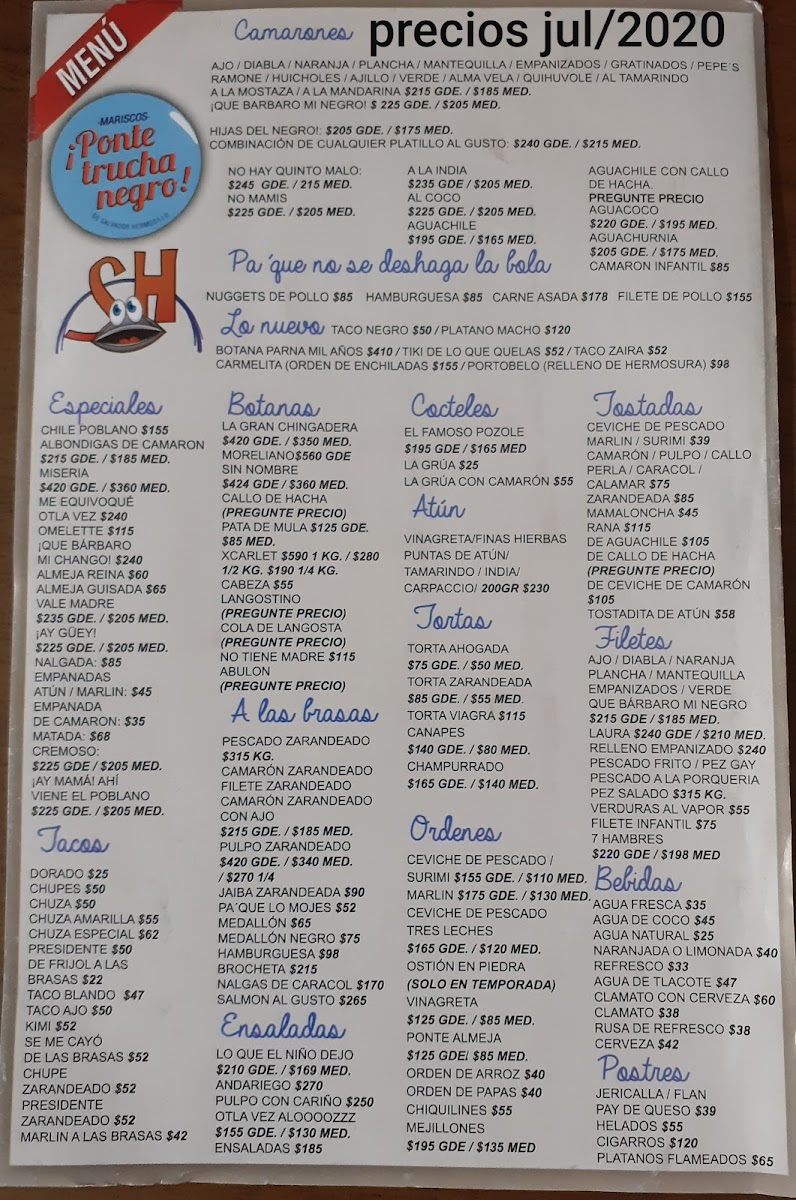 MENÚ
Camarones precios jul/2020
AJO / DIABLA / NARANJA / PLANCHA / MANTEQUILLA / EMPANIZADOS / GRATINADOS / PEPE´S
RAMONE / HUICHOLES / AJILLO / VERDE / ALMA VELA / QUIHUVOLE / AL TAMARINDO
A LA MOSTAZA / A LA MANDARINA $215 GDE. / $185 MED.
¡QUE BARBARO MI NEGRO! $ 225 GDE. / $205 MED.
HIJAS DEL NEGRO!: $205 GDE. / $175 MED.
COMBINACIÓN DE CUALQUIER PLATILLO AL GUSTO: $240 GDE. / $215 MED.
-MARISCOS-
¡Ponte
trucha
negro!
DE SALVADOR HERMOSILLO
SH
NO HAY QUINTO MALO:
$245 GDE. / 215 MED.
NO MAMIS
$225 GDE. / $205 MED.
A LA INDIA
$235 GDE / $205 MED.
AL COCO
$225 GDE. / $205 MED.
AGUACHILE
$195 GDE. / $165 MED.
AGUACHILE CON CALLO
DE HACHA.
PREGUNTE PRECIO
AGUACOCO
$220 GDE. / $195 MED.
AGUACHURNIA
$205 GDE. / $175 MED.
CAMARON INFANTIL $85
Pa´que no se deshaga la bola
NUGGETS DE POLLO $85 HAMBURGUESA $85 CARNE ASADA $178 FILETE DE POLLO $155
Lo nuevo TACO NEGRO $50 / PLATANO MACHO $120
BOTANA PARNA MIL AÑOS $410 / TIKI DE LO QUE QUELAS $52 / TACO ZAIRA $52
CARMELITA (ORDEN DE ENCHILADAS $155 / PORTOBELO (RELLENO DE HERMOSURA) $98
Especiales
CHILE POBLANO $155
ALBONDIGAS DE CAMARON
$215 GDE. / $185 MED.
MISERIA
$420 GDE. / $360 MED.
ME EQUIVOQUÉ
OTLA VEZ $240
OMELETTE $115
¡QUE BÁRBARO
MI CHANGO! $240
ALMEJA REINA $60
ALMEJA GUISADA $65
VALE MADRE
$235 GDE. / $205 MED.
¡AY GÜEY!
$225 GDE. / $205 MED.
NALGADA: $85
EMPANADAS
ATÚN / MARLIN: $45
EMPANADA
DE CAMARON: $35
MATADA: $68
CREMOSO:
$225 GDE / $205 MED.
¡AY MAMÁ! AHÍ
VIENE EL POBLANO
$225 GDE. / $205 MED.
Tacos
DORADO $25
CHUPES $50
CHUZA $50
CHUZA AMARILLA $55
CHUZA ESPECIAL $62
PRESIDENTE $50
DE FRIJOL A LAS
BRASAS $22
TACO BLANDO $47
TACO AJO $50
KIMI $52
SE ME CAYÓ
DE LAS BRASAS $52
CHUPE
ZARANDEADO $52
PRESIDENTE
ZARANDEADO $52
MARLIN A LAS BRASAS $42
Botanas
LA GRAN CHINGADERA
$420 GDE. / $350 MED.
MORELIANO$560 GDE
SIN NOMBRE
$424 GDE / $360 MED.
CALLO DE HACHA
(PREGUNTE PRECIO)
PATA DE MULA $125 GDE.
$85 MED.
XCARLET $590 1 KG. / $280
1/2 KG. $190 1/4 KG.
CABEZA $55
LANGOSTINO
(PREGUNTE PRECIO)
COLA DE LANGOSTA
(PREGUNTE PRECIO)
NO TIENE MADRE $115
ABULON
(PREGUNTE PRECIO)
A las brasas
PESCADO ZARANDEADO
$315 KG.
CAMARÓN ZARANDEADO
FILETE ZARANDEADO
CAMARÓN ZARANDEADO
CON AJO
$215 GDE. / $185 MED.
PULPO ZARANDEADO
$420 GDE. / $340 MED.
/ $270 1/4
JAIBA ZARANDEADA $90
PA´QUE LO MOJES $52
MEDALLÓN $65
MEDALLÓN NEGRO $75
HAMBURGUESA $98
BROCHETA $215
NALGAS DE CARACOL $170
SALMON AL GUSTO $265
Ensaladas
LO QUE EL NIÑO DEJO
$210 GDE. / $169 MED.
ANDARIEGO $270
PULPO CON CARIÑO $250
OTLA VEZ ALOOOOZZZ
$155 GDE. / $130 MED.
ENSALADAS $185
Cocteles
EL FAMOSO POZOLE
$195 GDE / $165 MED
LA GRÚA $25
LA GRÚA CON CAMARÓN $55
Atún
VINAGRETA/FINAS HIERBAS
PUNTAS DE ATÚN/
TAMARINDO / INDIA/
CARPACCIO/ 200GR $230
Tortas
TORTA AHOGADA
$75 GDE. / $50 MED.
TORTA ZARANDEADA
$85 GDE. / $55 MED.
TORTA VIAGRA $115
CANAPES
$140 GDE. / $80 MED.
CHAMPURRADO
$165 GDE. / $140 MED.
Ordenes
CEVICHE DE PESCADO /
SURIMI $155 GDE. / $110 MED.
MARLIN $175 GDE. / $130 MED.
CEVICHE DE PESCADO
TRES LECHES
$165 GDE. / $120 MED.
OSTIÓN EN PIEDRA
(SOLO EN TEMPORADA)
VINAGRETA
$125 GDE. / $85 MED.
PONTE ALMEJA
$125 GDE/ $85 MED.
ORDEN DE ARROZ $40
ORDEN DE PAPAS $40
CHIQUILINES $55
MEJILLONES
$195 GDE / $135 MED
Tostadas
CEVICHE DE PESCADO
MARLIN / SURIMI $39
CAMARÓN / PULPO / CALLO
PERLA / CARACOL /
CALAMAR $75
ZARANDEADA $85
MAMALONCHA $45
RANA $115
DE AGUACHILE $105
DE CALLO DE HACHA
(PREGUNTE PRECIO)
DE CEVICHE DE CAMARÓN
$105
TOSTADITA DE ATÚN $58
Filetes
AJO / DIABLA / NARANJA
PLANCHA / MANTEQUILLA
EMPANIZADOS / VERDE
QUE BÁRBARO MI NEGRO
$215 GDE. / $185 MED.
LAURA $240 GDE / $210 MED.
RELLENO EMPANIZADO $240
PESCADO FRITO / PEZ GAY
PESCADO A LA PORQUERIA
PEZ SALADO $315 KG.
VERDURAS AL VAPOR $55
FILETE INFANTIL $75
7 HAMBRES
$220 GDE / $198 MED
Bebidas
AGUA FRESCA $35
AGUA DE COCO $45
AGUA NATURAL $25
NARANJADA O LIMONADA $40
REFRESCO $33
AGUA DE TLACOTE $47
CLAMATO CON CERVEZA $60
CLAMATO $38
RUSA DE REFRESCO $38
CERVEZA $42
Postres
JERICALLA / FLAN
PAY DE QUESO $39
HELADOS $55
CIGARROS $120
PLATANOS FLAMEADOS $65